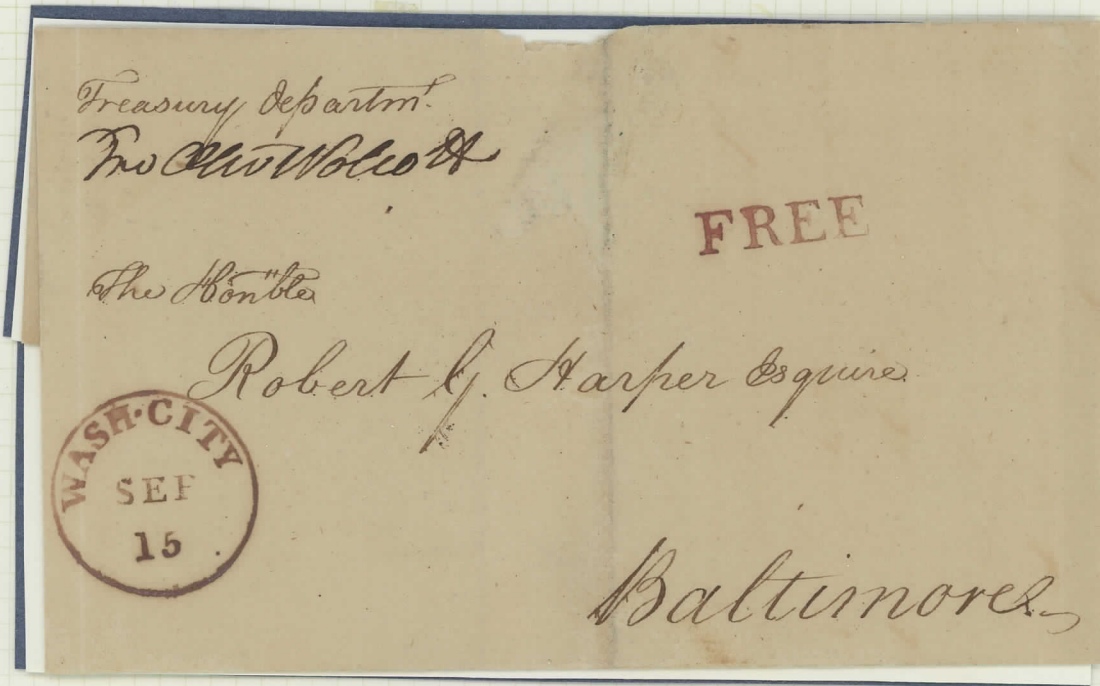 Treasury departmt.
Free Oliv Wolcott
FREE
The Hon'ble
Robert G. Harper Esquire
WASH·CITY
SEP
15
Baltimore